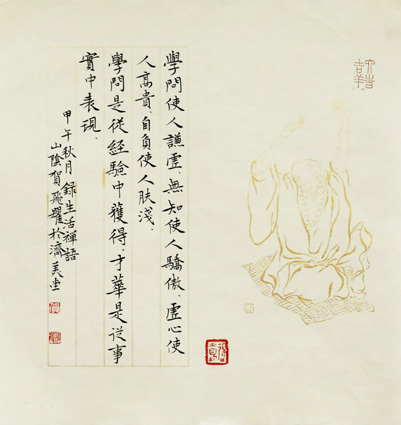 學問使人謙虛、無知使人驕傲、虛心使
人高貴、自負使人肤淺、
學問是從經驗中獲得、才華是從事
實中表現、
甲午秋月錄生活禪語
山陰賀飛躍於濟美堂